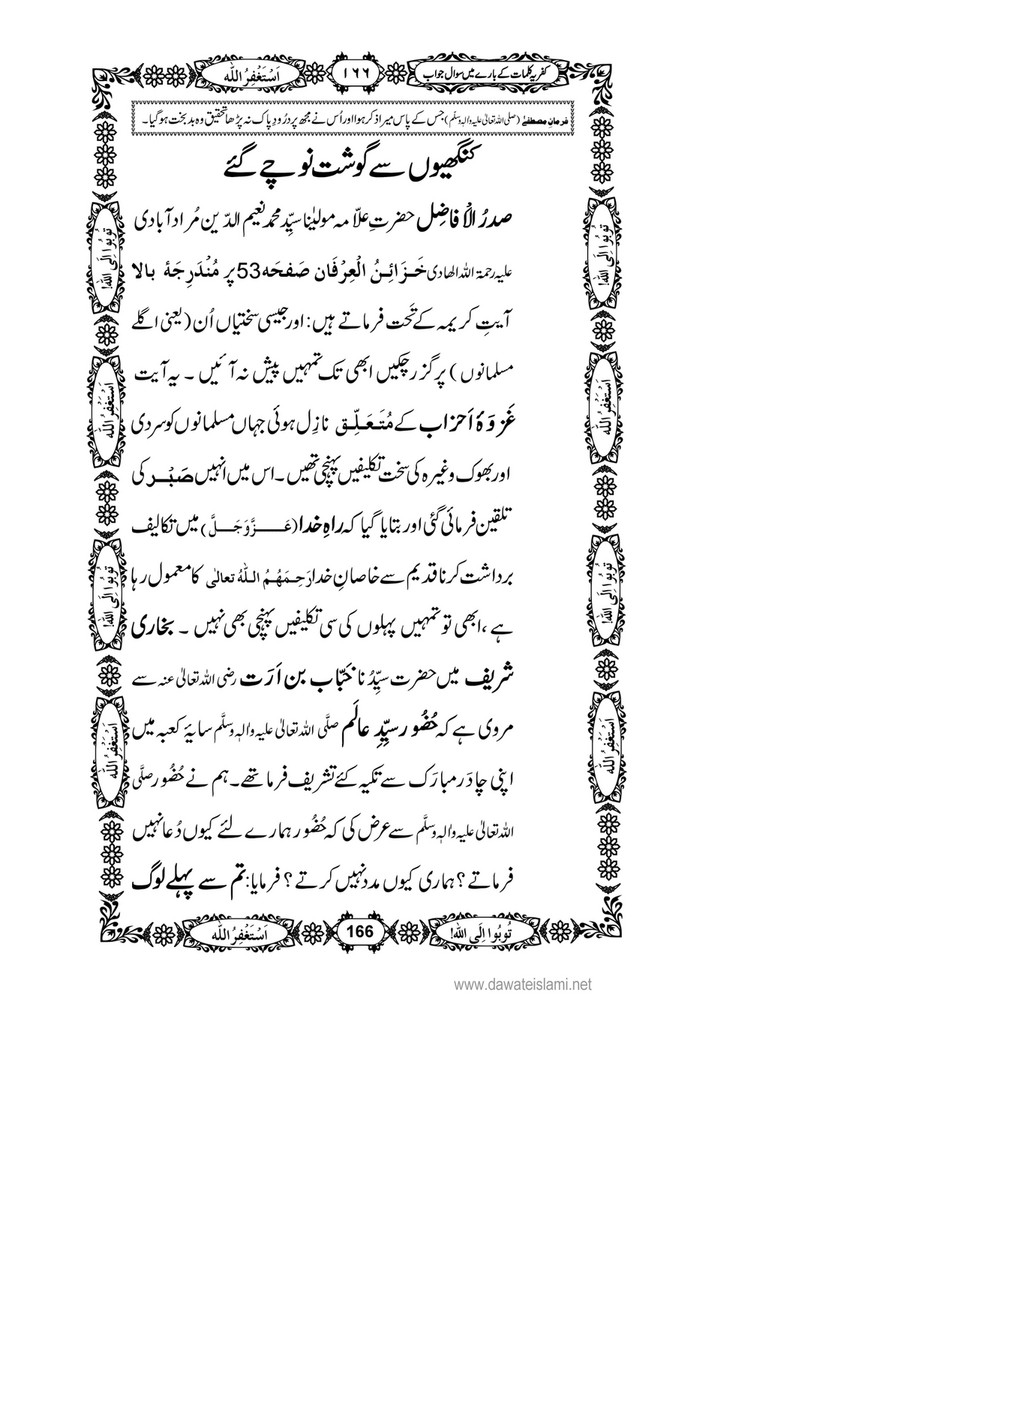 کفریہ کلمات کے بارے میں سوال جواب ۱۶۶ اَسْتَغْفِرُ اللہ
فرمانِ مصطفٰے (صلی اللہ تعالیٰ علیہ والہ وسلم) جس کے پاس میرا ذکر ہوا اور اُس نے مجھ پر دُرُودِ پاک نہ پڑھا تحقیق وہ بد بخت ہو گیا۔
کنگھیوں سے گوشت نوچے گئے
صدرُ الْاَفاضِل حضرتِ علّامہ مولیٰنا سیِّد محمد نعیم الدّین مُراد آبادی
علیہ رحمۃ اللہ الھادی خَزَائِنُ الْعِرْفَان صَفحَہ 53 پر مُنْدَرِجَۂ بالا
آیتِ کریمہ کے تَحت فرماتے ہیں: اور جیسی سختیاں اُن (یعنی اگلے
مسلمانوں) پر گزر چکیں ابھی تک تمہیں پیش نہ آئیں۔ یہ آیت
غَزوَۂ اَحزاب کے مُتَعَلِّق نازِل ہوئی جہاں مسلمانوں کو سردی
اور بھوک وغیرہ کی سخت تکلیفیں پہنچی تھیں۔ اس میں انہیں صَبْر کی
تلقین فرمائی گئی اور بتایا گیا کہ راہِ خدا (عَزَّوَجَلَّ) میں تکالیف
برداشت کرنا قدیم سے خاصانِ خدا رَحِمَهُمُ اللہُ تعالٰی کا معمول رہا
ہے، ابھی تو تمہیں پہلوں کی سی تکلیفیں پہنچی بھی نہیں۔ بخاری
شریف میں حضرت سیِّدُنا خَبّاب بن اَرَت رضی اللہ تعالیٰ عنہ سے
مروی ہے کہ حُضُور سیِّدِ عالَم صلَّی اللہ تعالیٰ علیہ والہٖ وسلَّم سایۂ کعبہ میں
اپنی چادرِ مبارَک سے تکیہ کئے تشریف فرما تھے۔ ہم نے حُضُور صلَّی
اللہ تعالیٰ علیہ والہٖ وسلَّم سے عرض کی کہ حُضُور ہمارے لئے کیوں دُعا نہیں
فرماتے؟ ہماری کیوں مدد نہیں کرتے؟ فرمایا: تم سے پہلے لوگ
تُوبُوا اِلَی اللہ!
اَسْتَغْفِرُ اللہ
تُوبُوا اِلَی اللہ!
اَسْتَغْفِرُ اللہ
تُوبُوا اِلَی اللہ!
اَسْتَغْفِرُ اللہ
تُوبُوا اِلَی اللہ!
اَسْتَغْفِرُ اللہ
تُوبُوا اِلَی اللہ! 166 اَسْتَغْفِرُ اللہ
www.dawateislami.net